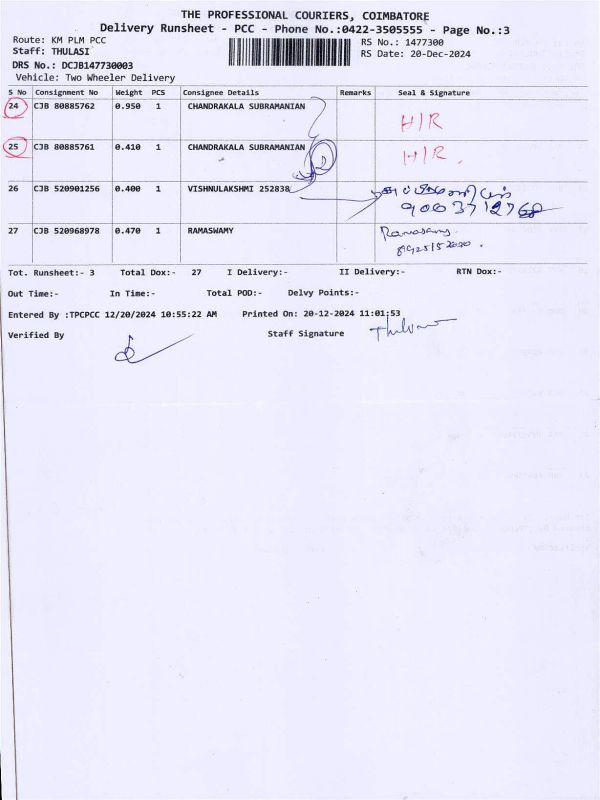 THE PROFESSIONAL COURIERS, COIMBATORE
Delivery Runsheet - PCC - Phone No.:0422-3505555 - Page No.:3
Route: KM PLM PCC RS No.: 1477300
Staff: THULASI RS Date: 20-Dec-2024
DRS No.: DCJB147730003
Vehicle: Two Wheeler Delivery
S No Consignment No Weight PCS Consignee Details Remarks Seal & Signature
24 CJB 80885762 0.950 1 CHANDRAKALA SUBRAMANIAN H/R
25 CJB 80885761 0.410 1 CHANDRAKALA SUBRAMANIAN H/R.
26 CJB 520901256 0.400 1 VISHNULAKSHMI 252838
27 CJB 520968978 0.470 1 RAMASWAMY Ramasamy
Tot. Runsheet:- 3 Total Dox:- 27 I Delivery:- II Delivery:- RTN Dox:-
Out Time:- In Time:- Total POD:- Delvy Points:-
Entered By :TPCPCC 12/20/2024 10:55:22 AM Printed On: 20-12-2024 11:01:53
Verified By Staff Signature